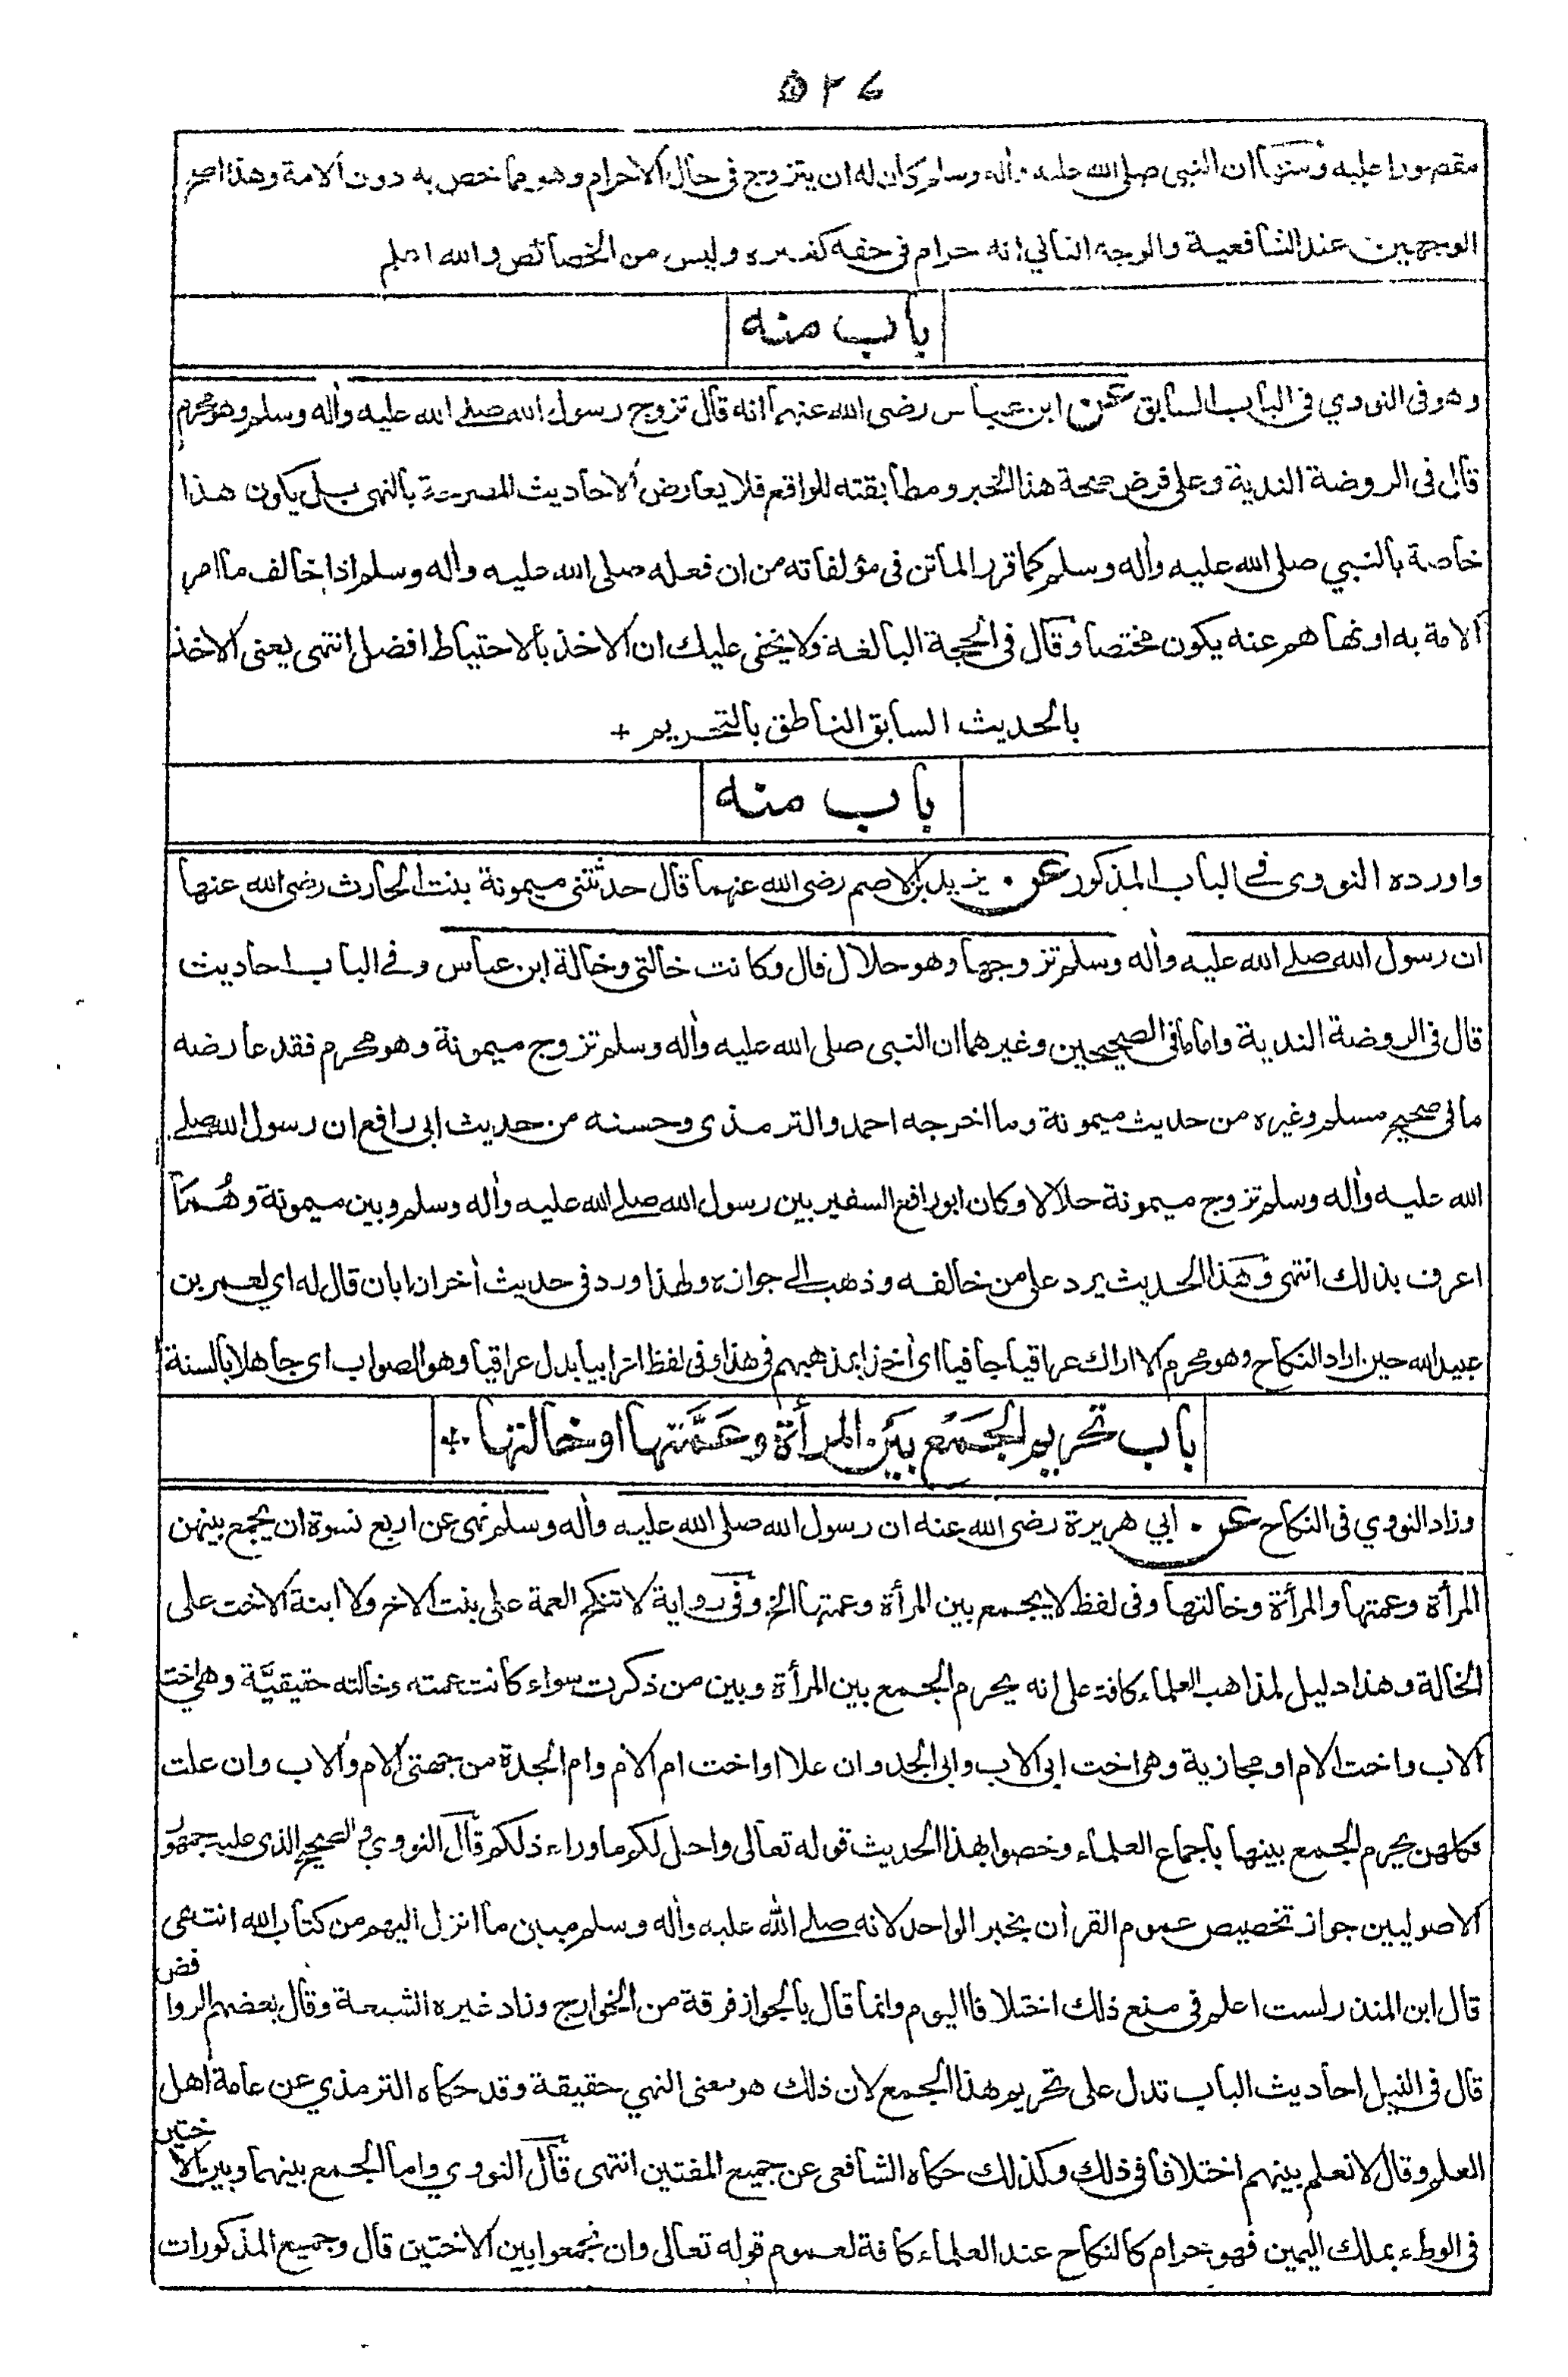 ٥٢٦
مقصورا عليه ومنها ان النبي صلى الله عليه وأله وسلم كان له ان يتزوج في حال الاحرام وهو مما خص به دون الامة وهذا اصح
الوجهين عند الشافعية والوجه الثاني انه حرام في حقه كغيره وليس من الخصائص والله اعلم
باب منه
وهو فى النووي فى الباب السابق عن ابن عباس رضى الله عنهما انه قال تزوج رسول الله صلے الله عليه وأله وسلم وهو محرم
قال فى الروضة الندية وعلى فرض صحة هذا الخبر ومطابقته للواقع فلا يعارض الاحاديث المصرحة بالنهى بل يكون هذا
خاصة بالنبي صلى الله عليه وأله وسلم كما قرر الماتن فى مؤلفاته من ان فعله صلى الله عليه وأله وسلم اذا خالف ما امر
الامة به او نهاهم عنه يكون مختصا وقال فى الحجة البالغة ولا يخفى عليك ان الاخذ بالاحتياط افضل انتهى يعنى الاخذ
بالحديث السابق الناطق بالتحريم +
باب منه
واورده النووى فے الباب المذكور عن يزيد بن الاصم رضى الله عنهما قال حدثتنى ميمونة بنت الحارث رضى الله عنها
ان رسول الله صلے الله عليه وأله وسلم تزوجها وهو حلال قال وكانت خالتى وخالة ابن عباس وفے الباب احاديث
قال فى الروضة الندية واما ما فى الصحيحين وغيرهما ان النبى صلى الله عليه وأله وسلم تزوج ميمونة وهو محرم فقد عارضه
ما فى صحيح مسلم وغيره من حديث ميمونة وما اخرجه احمد والترمذى وحسنه من حديث ابى رافع ان رسول الله صلے
الله عليه وأله وسلم تزوج ميمونة حلالا وكان ابو رافع السفير بين رسول الله صلے الله عليه وأله وسلم وبين ميمونة وهُمَا
اعرف بذلك انتهى وهذا الحديث يرد على من خالفه وذهب الے جوازه ولهذا ورد فى حديث أخر ان ابان قال له اي لعمر بن
عبيد الله حين اراد النكاح وهو محرم الا اراك عراقيا جافيا اى أخذا بمذهبهم فى هذا وفى لفظ اعرابيا بدل عراقيا وهو الصواب اى جاهلا بالسنة
باب تحريم الجَمْع بَيْنَ المرأة وعَمَّتها او خالتها +
وزاد النووي فى النكاح عن ابي هريرة رضى الله عنه ان رسول الله صلى الله عليه وأله وسلم نهى عن اربع نسوة ان يجمع بينهن
المرأة وعمتها والمرأة وخالتها وفى لفظ لا يجمع بين المرأة وعمتها الخ وفى رواية لا تنكح العمة على بنت الاخ ولا ابنة الاخت على
الخالة وهذا دليل لمذاهب العلماء كافة على انه يحرم الجمع بين المرأة وبين من ذكرت سواء كانت عمته وخالته حقيقيَّة وهى اخت
الاب واخت الام او مجازية وهى اخت ابى الاب وابى الجد وان علا او اخت ام الام وام الجدة من جهتى الام والاب وان علت
فكلهن يحرم الجمع بينها باجماع العلماء وخصوا بهذا الحديث قوله تعالى واحل لكم ما وراء ذلكم قال النووي فى الصحيح الذى عليه جمهور
الاصوليين جواز تخصيص عموم القرأن بخبر الواحد لانه صلے الله عليه وأله وسلم مبين ما انزل اليهم من كتاب الله انتهى
قال ابن المنذر لست اعلم فى منع ذلك اختلافا اليوم وانما قال بالجواز فرقة من الخوارج وزاد غيره الشيعة وقال بعضهم الروافض
قال فى النيل احاديث الباب تدل على تحريم هذا الجمع لان ذلك هو معنى النهي حقيقة وقد حكاه الترمذي عن عامة اهل
العلم وقال لا نعلم بينهم اختلافا فى ذلك وكذلك حكاه الشافعى عن جميع المفتين انتهى قال النووي واما الجمع بينهما وبين الاختين
فى الوطء بملك اليمين فهو حرام كالنكاح عند العلماء كافة لعموم قوله تعالى وان تجمعوا بين الاختين قال وجميع المذكورات